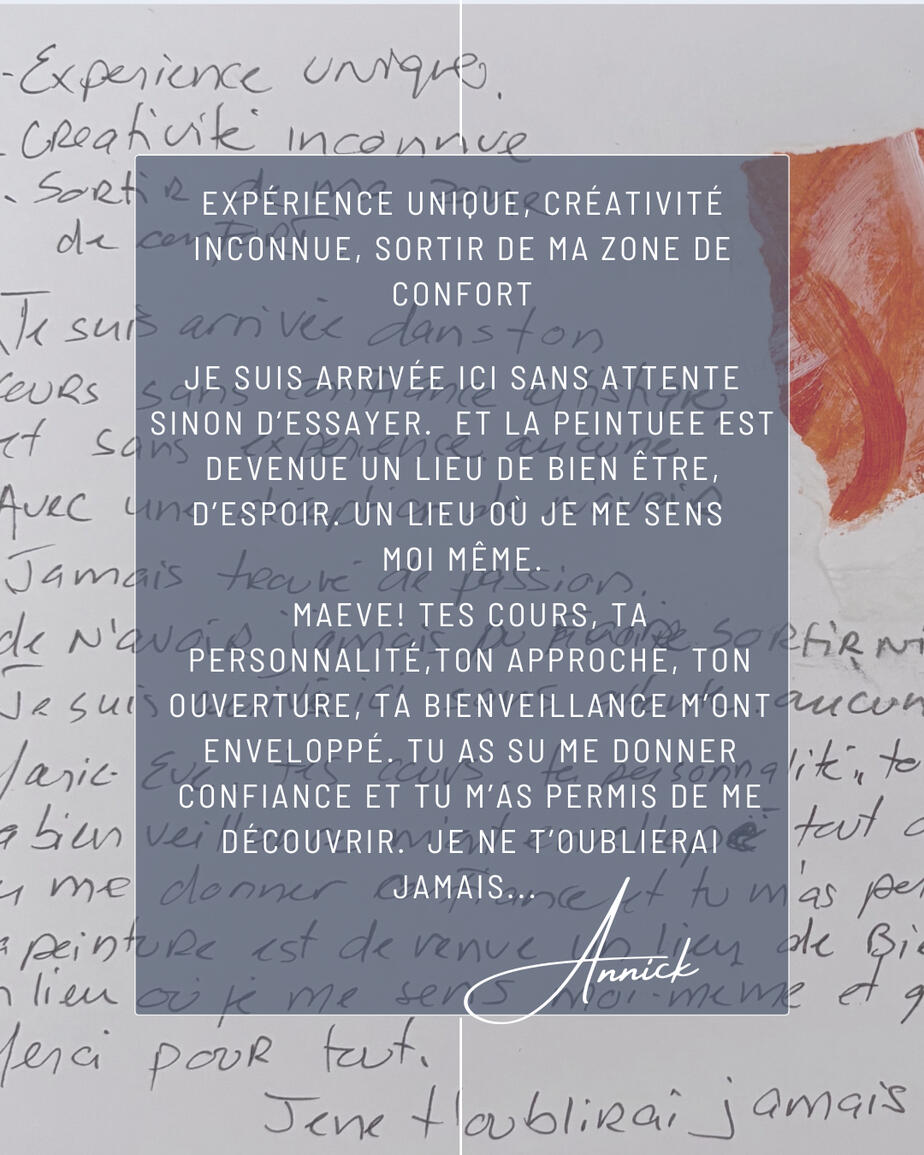 -Experience unique.
- Creativité inconnue
. Sortir de ma zone
de confort
EXPÉRIENCE UNIQUE, CRÉATIVITÉ
INCONNUE, SORTIR DE MA ZONE DE
CONFORT
Je suis arrivée dans ton
JE SUIS ARRIVÉE ICI SANS ATTENTE
SINON D'ESSAYER. ET LA PEINTUEE EST
DEVENUE UN LIEU DE BIEN ÊTRE,
D'ESPOIR. UN LIEU OÙ JE ME SENS
MOI MÊME.
MAEVE! TES COURS, TA
PERSONNALITÉ,TON APPROCHE, TON
OUVERTURE, TA BIENVEILLANCE M'ONT
ENVELOPPÉ. TU AS SU ME DONNER
CONFIANCE ET TU M'AS PERMIS DE ME
DÉCOUVRIR. JE NE T'OUBLIERAI
JAMAIS...
Annick
sans confiance artistique
et sans expérience aucune
Avec une
Jamais trouvé de passion.
de N'avoir jamais
Je suis
tes cours, ta personnalité,
me donner confiance et tu m'as
peinture est devenue un lieu de
lieu où je me sens moi-même et
Merci pour tout.
Je ne t'oublirai jamais